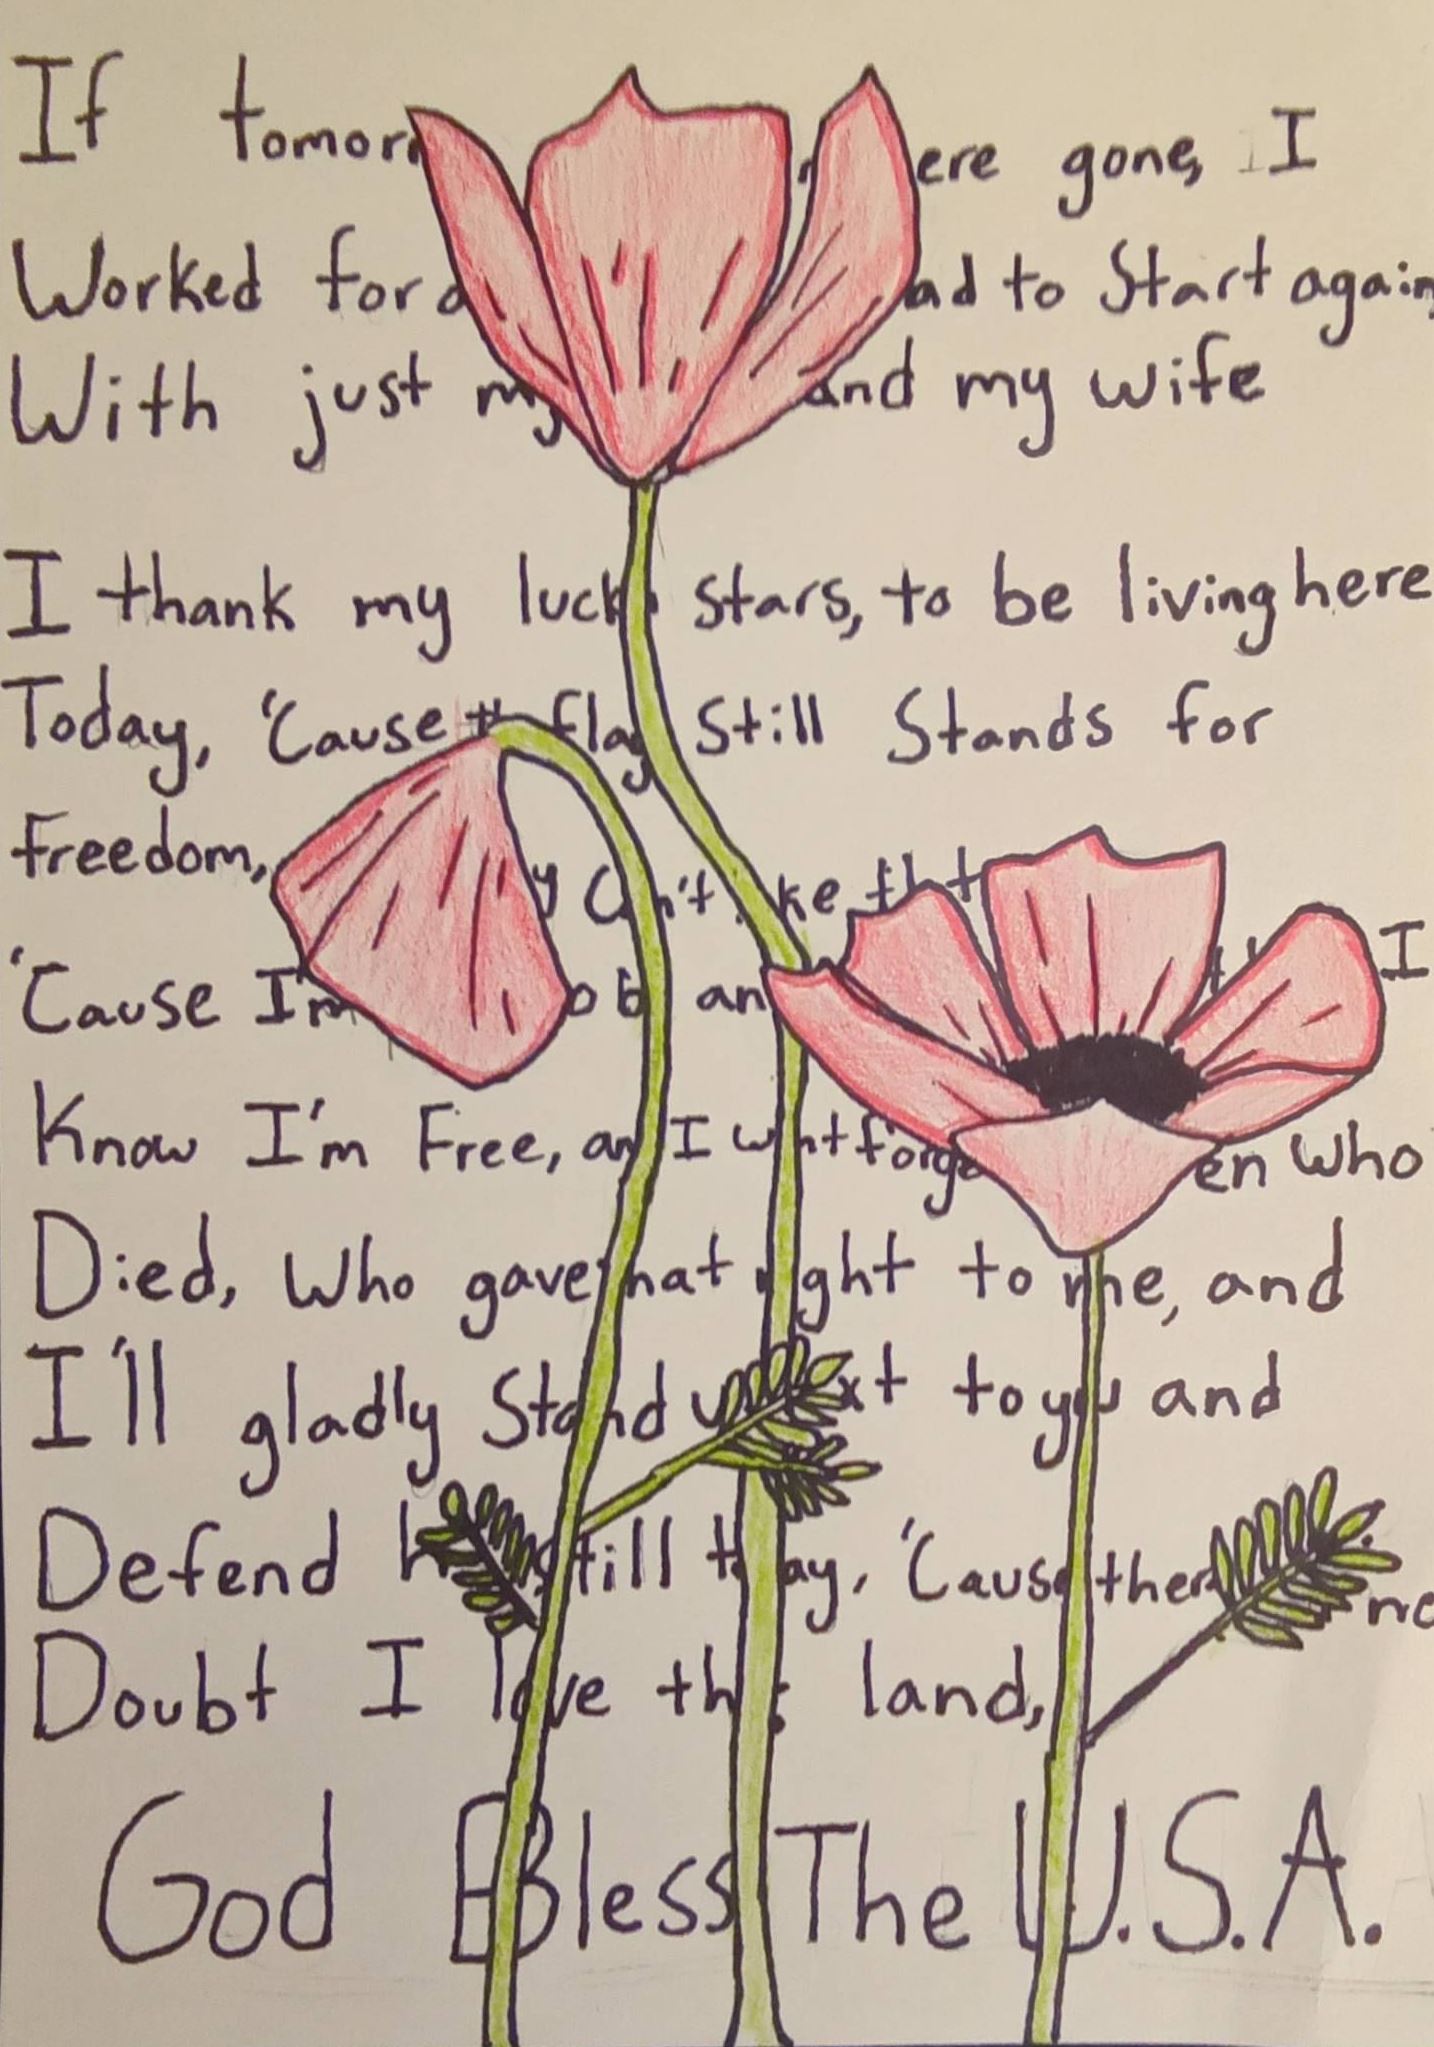 If gone, I
Worked for ad to Start again,
With just my and my wife
I thank my lucky Stars, to be living here
Today, 'Cause the flag Still Stands for
Freedom, can't take that
'Cause I'm an I
Know I'm Free, and I wont en who
Died, Who gave that right to me, and
I'll gladly Stand to you and
Defend Still today, 'Cause there no
Doubt I love this land,
God Bless The U.S.A.